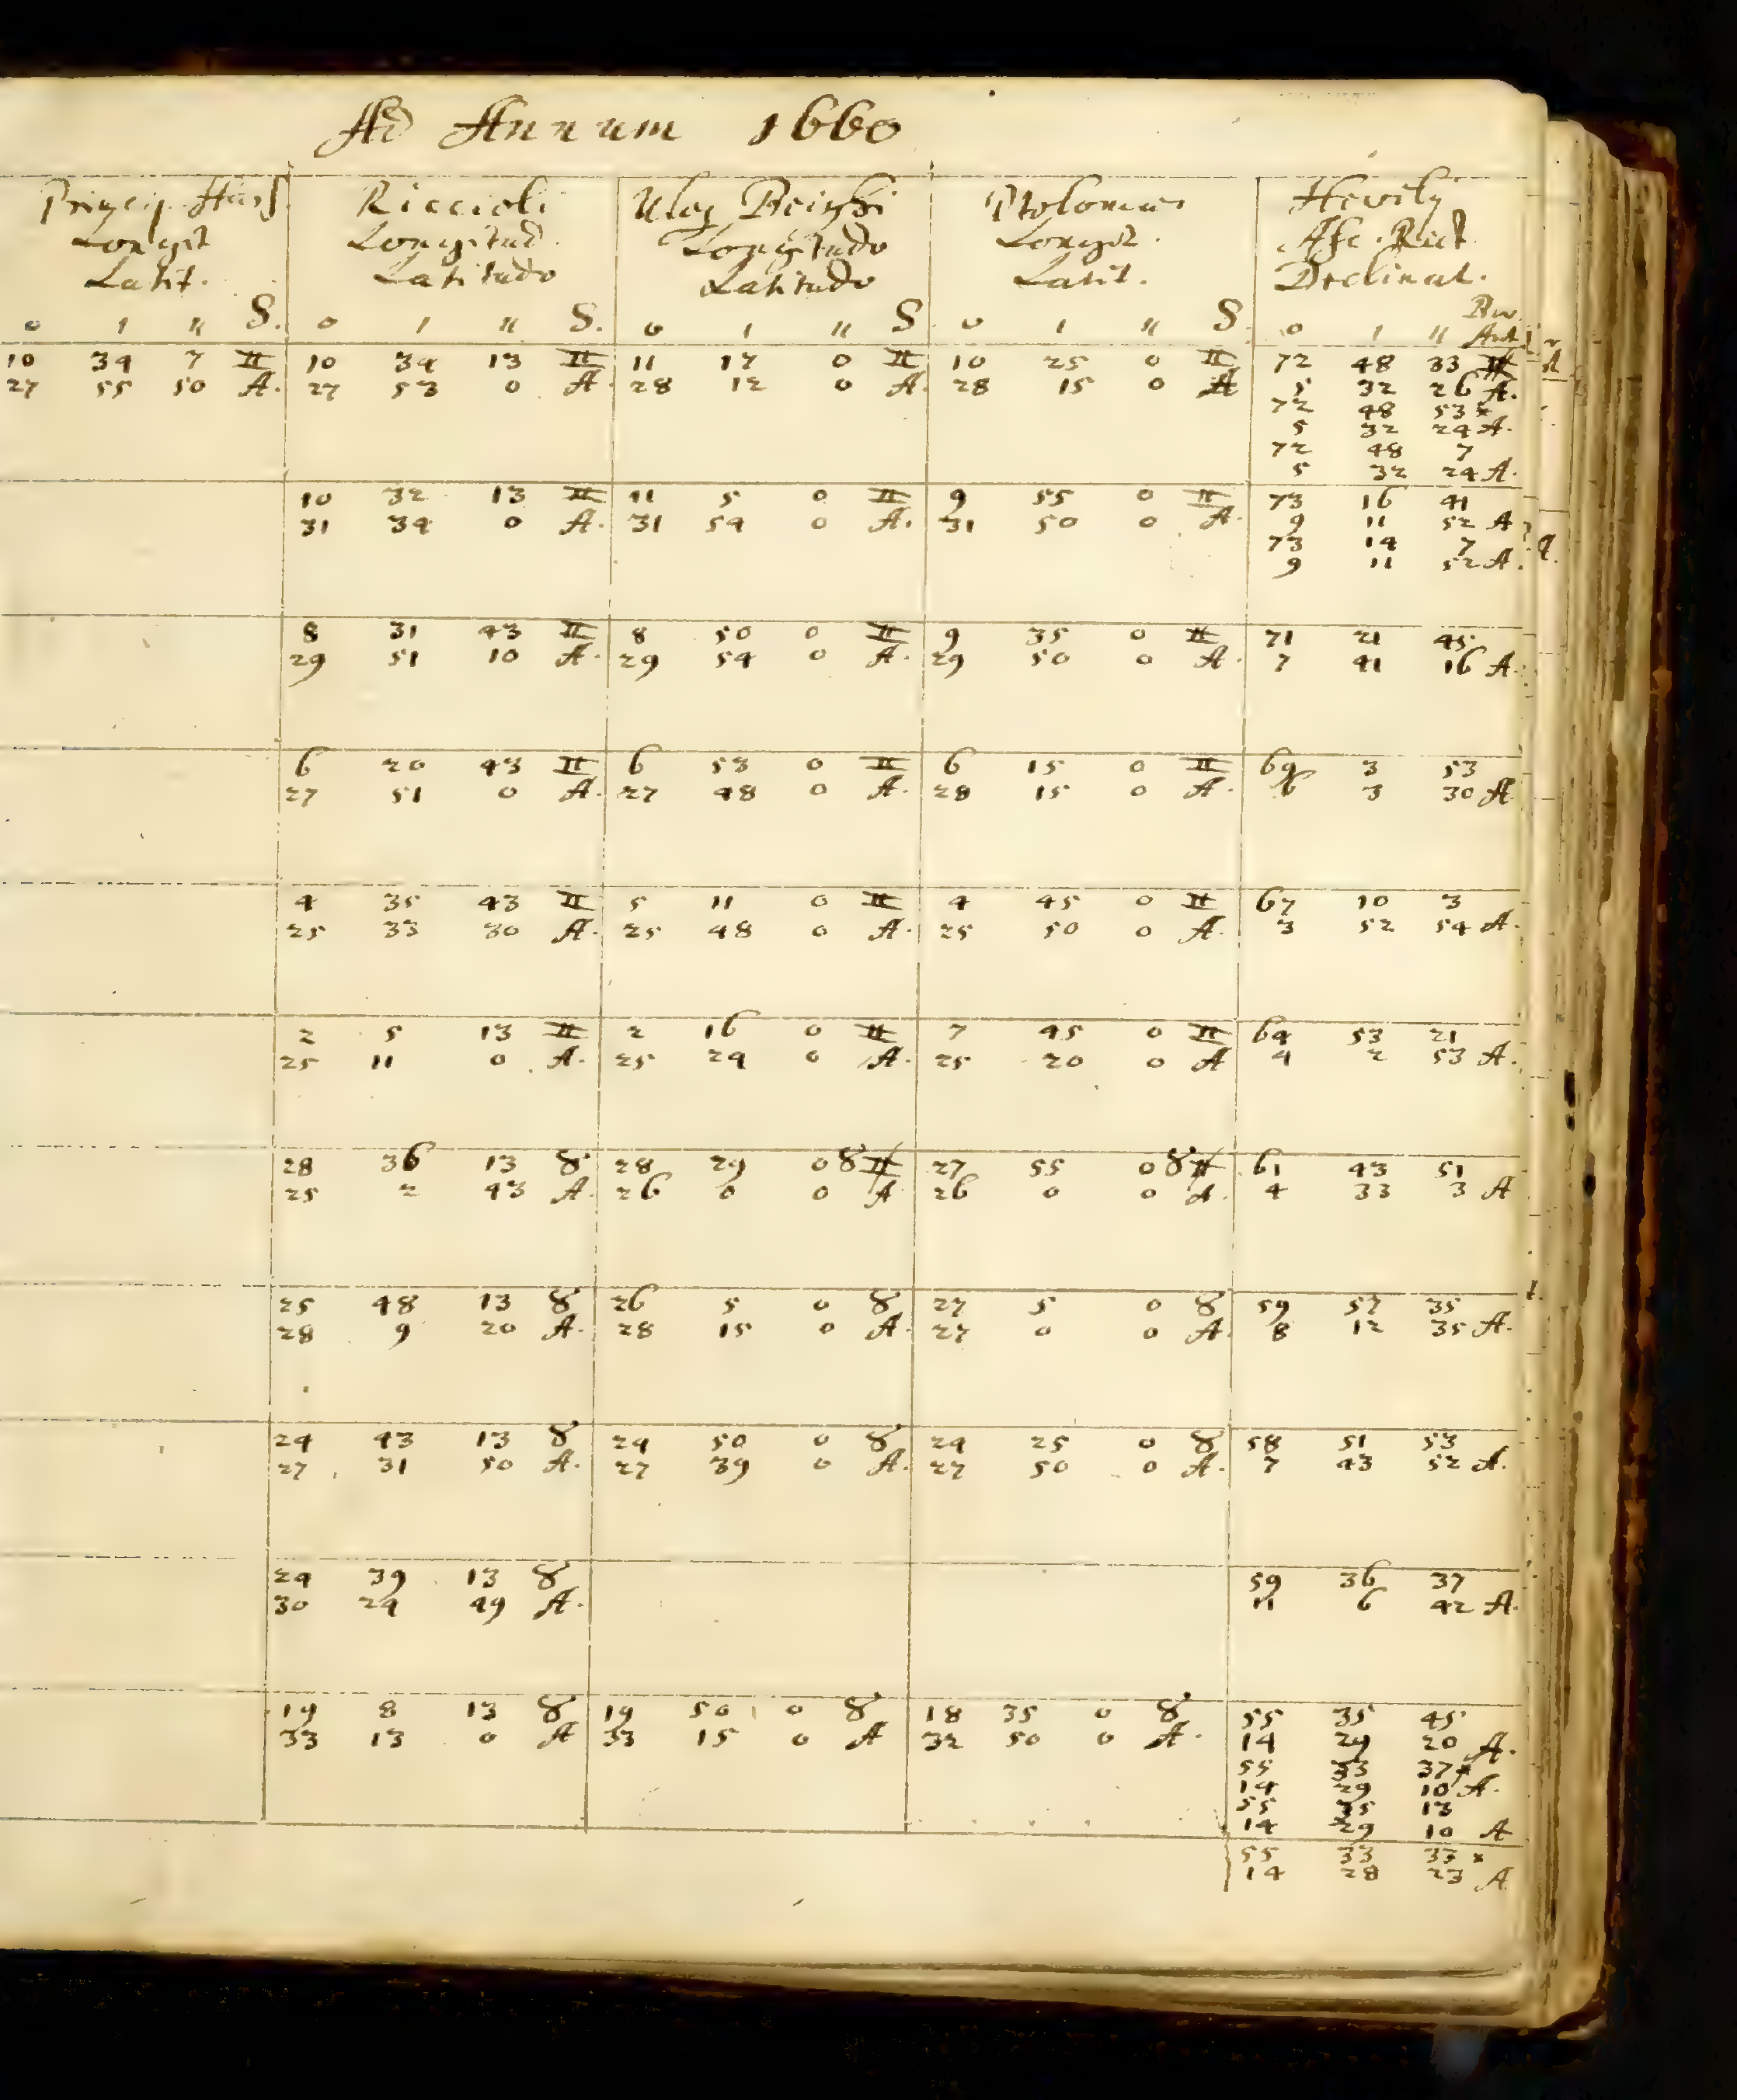 Ad Annum 1660
Princip. Hass. Riccioli Uleg Beighi Ptolomæus Hevelij
Longit Longitud. Longitudo Longit. Asc. Rect.
Latit. Latitudo Latitudo Latit. Declinat.
0 ı ıı S. 0 ı ıı S. 0 ı ıı S 0 ı ıı S. 0 ı ıı
10 34 7 ♊ 10 34 13 ♊ 11 17 0 ♊ 10 25 0 ♊ 72 48 33
27 55 50 A. 27 53 0 A. 28 12 0 A. 28 15 0 A 5 32 26 A.
72 48 53*
5 32 24 A.
72 48 7
5 32 24 A.
10 32 13 ♊ 11 5 0 ♊ 9 55 0 ♊ 73 16 41
31 34 0 A. 31 54 0 A. 31 50 0 A. 9 11 52 A
73 14 7
9 11 52 A.
8 31 43 ♊ 8 50 0 ♊ 9 35 0 ♊ 71 21 45
29 51 10 A. 29 54 0 A. 29 50 0 A. 7 41 16 A.
6 20 43 ♊ 6 53 0 ♊ 6 15 0 ♊ 69 3 53
27 51 0 A. 27 48 0 A. 28 15 0 A. 6 3 30 A
4 35 43 ♊ 5 11 0 ♊ 4 45 0 ♊ 67 10 3
25 33 30 A. 25 48 0 A. 25 50 0 A. 3 52 54 A.
2 5 13 ♊ 2 16 0 ♊ 7 45 0 ♊ 64 53 21
25 11 0 A. 25 24 0 A. 25 20 0 A 4 2 53 A.
28 36 13 ♉ 28 29 0 ♉ ♊ 27 55 0 ♉ ♊ 61 43 51
25 2 43 A. 26 0 0 A 26 0 0 A. 4 33 3 A
25 48 13 ♉ 26 5 0 ♉ 27 5 0 ♉ 59 57 35
28 9 20 A. 28 15 0 A. 27 0 0 A. 8 12 35 A.
24 43 13 ♉ 24 50 0 ♉ 24 25 0 ♉ 58 51 53
27 31 50 A. 27 39 0 A. 27 50 0 A. 7 43 52 A.
24 39 13 ♉ 59 36 37
30 24 49 A. 11 6 42 A.
19 8 13 ♉ 19 50 0 ♉ 18 35 0 ♉ 55 35 45
33 13 0 A 33 15 0 A 32 50 0 A. 14 29 20 A.
55 33 37*
14 29 10 A.
55 35 13
14 29 10 A
55 33 33 *
14 28 23 A